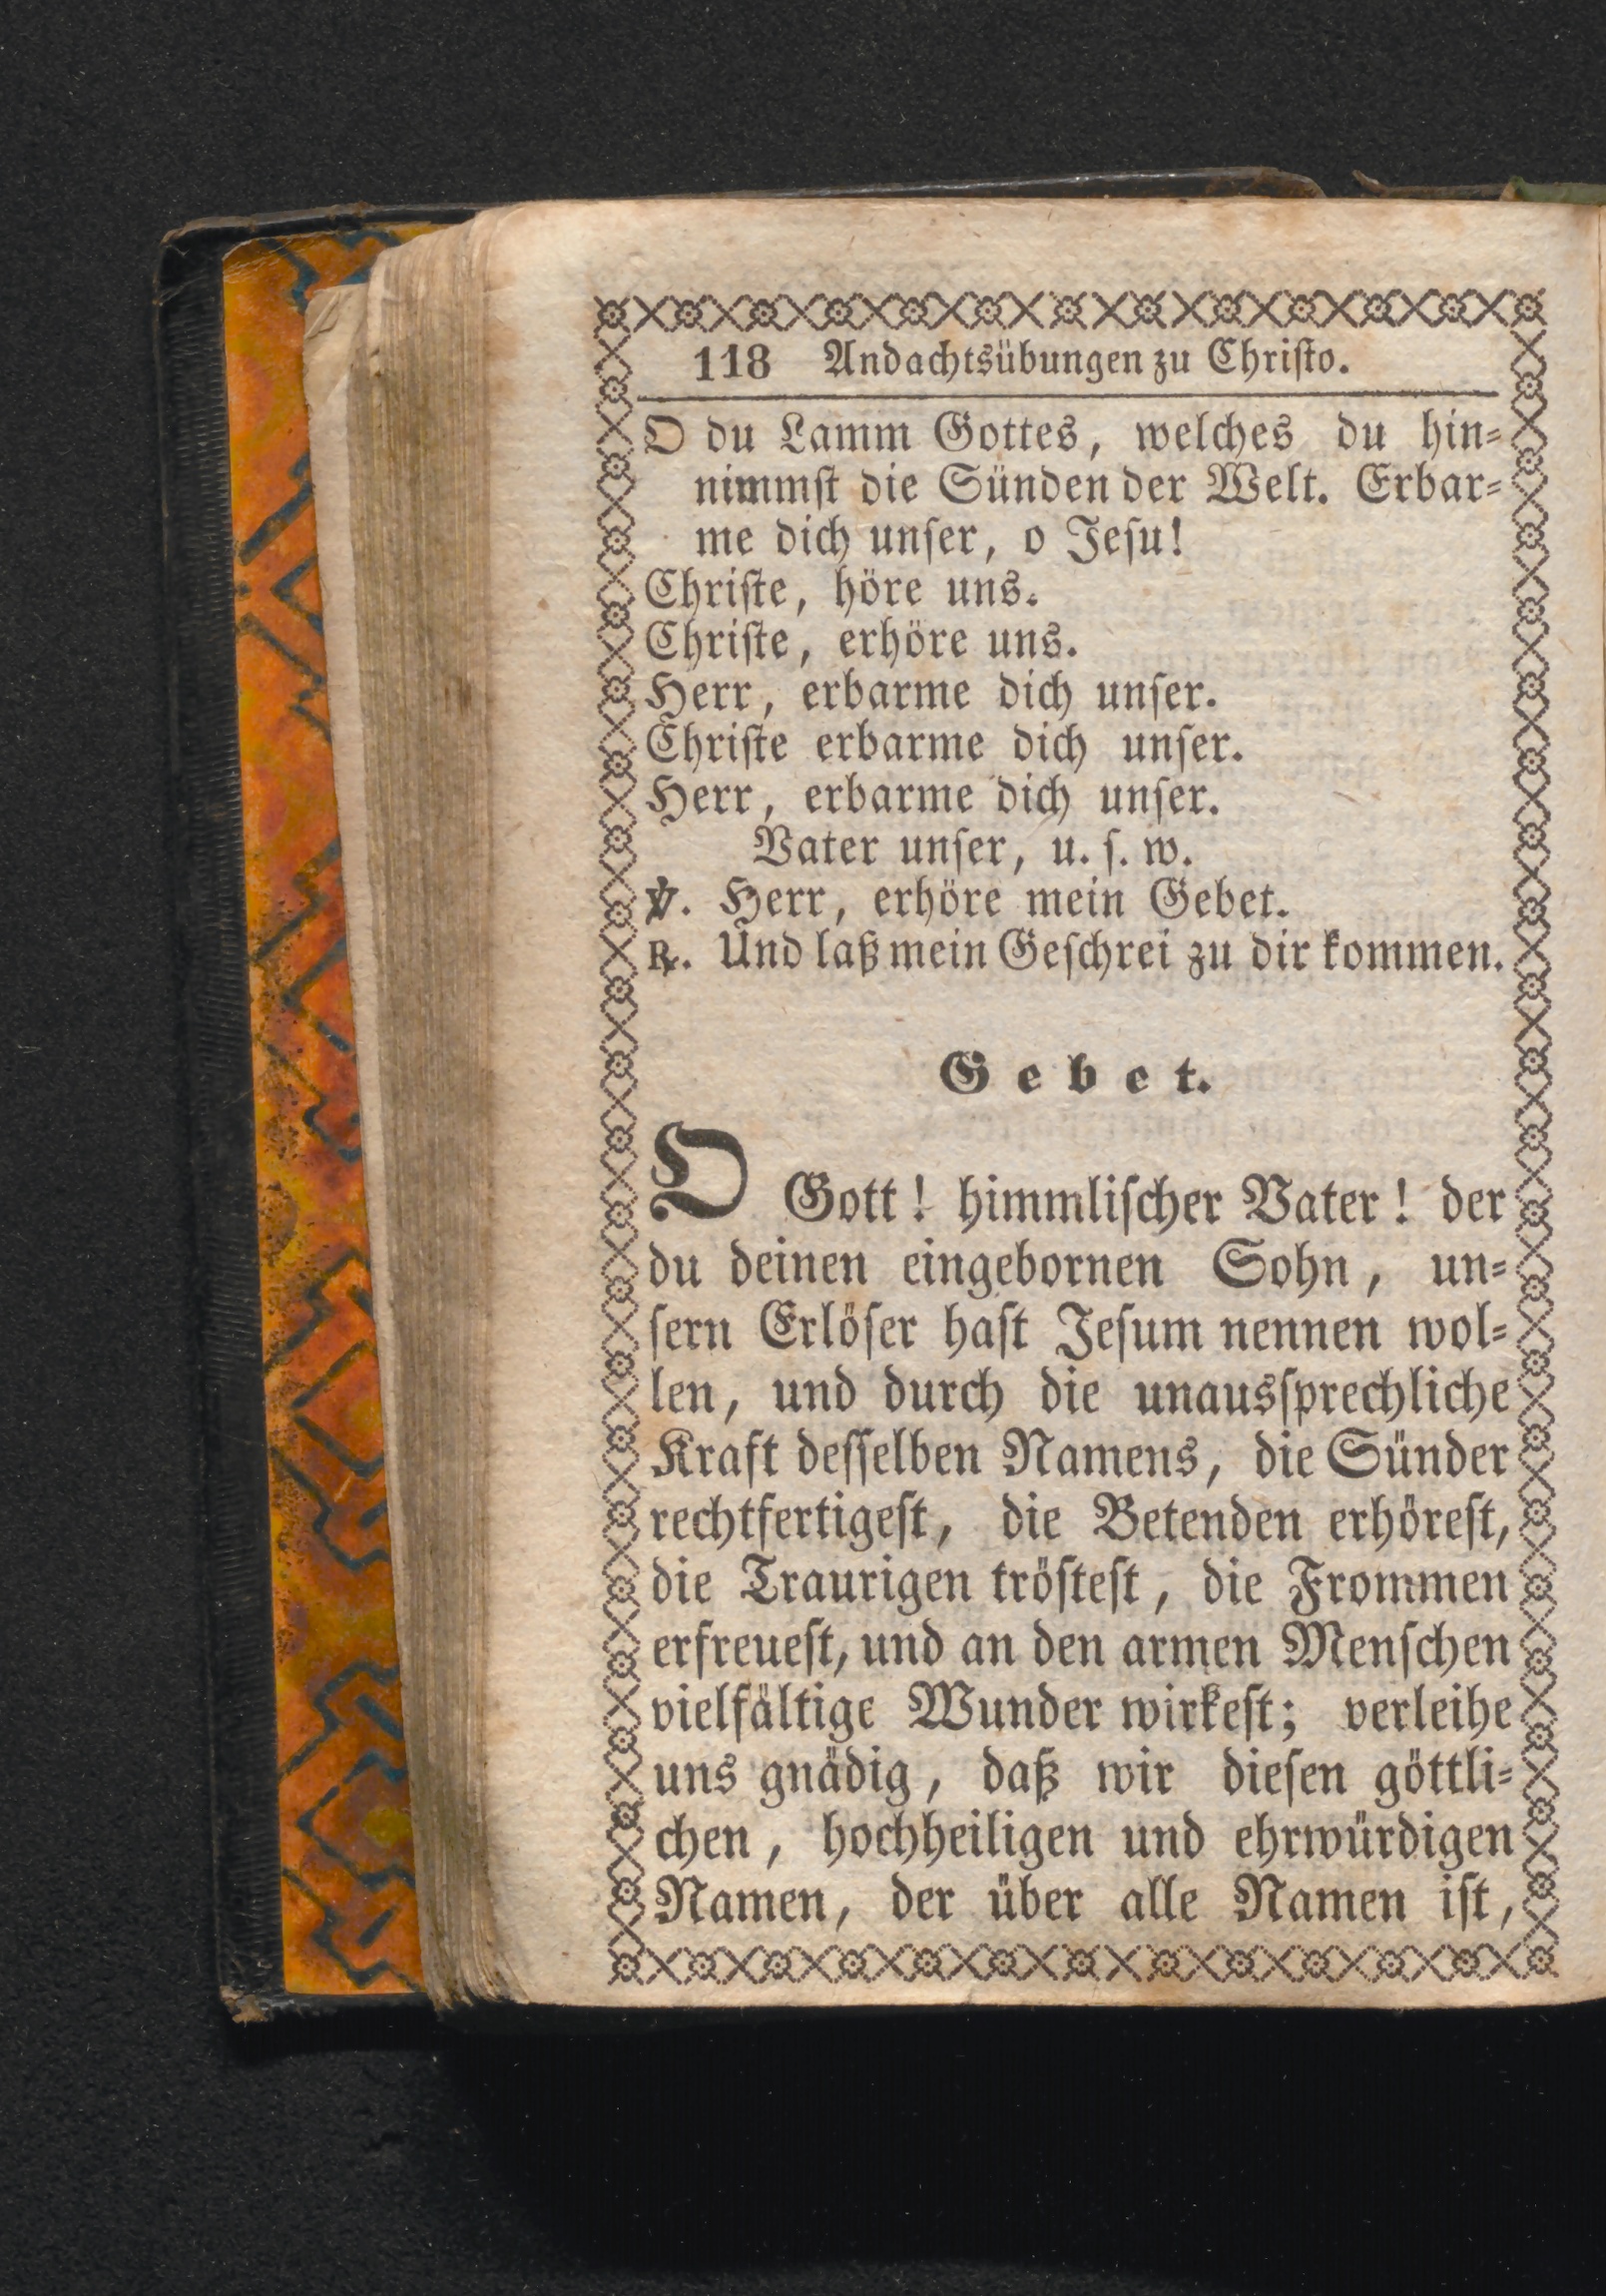 118 Andachtsübungen zu Chriſto.
O du Lamm Gottes, welches du hin⸗
nimmſt die Sünden der Welt. Erbar⸗
me dich unſer, o Jeſu!
Chriſte, höre uns.
Chriſte, erhöre uns.
Herr, erbarme dich unſer.
Chriſte erbarme dich unſer.
Herr, erbarme dich unſer.
Vater unſer, u. ſ. w.
℣. Herr, erhöre mein Gebet.
℟. Und laß mein Geſchrei zu dir kommen.
Gebet.
O Gott! himmliſcher Vater! der
du deinen eingebornen Sohn, un⸗
ſern Erlöſer haſt Jeſum nennen wol⸗
len, und durch die unausſprechliche
Kraft desſelben Namens, die Sünder
rechtfertigeſt, die Betenden erhöreſt,
die Traurigen tröſteſt, die Frommen
erfreueſt, und an den armen Menſchen
vielfältige Wunder wirkeſt; verleihe
uns gnädig, daß wir dieſen göttli⸗
chen, hochheiligen und ehrwürdigen
Namen, der über alle Namen iſt,